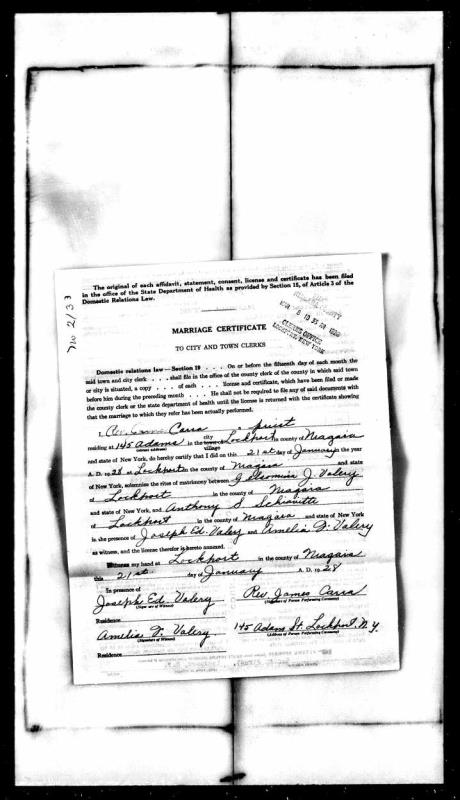 The original of each affidavit, statement, consent, license and certificate has been filed
in the office of the State Department of Health as provided by Section 15, of Article 3 of the
Domestic Relations Law.
No 2133
CLERKS OFFICE
LOCKPORT, NEW YORK
MARRIAGE CERTIFICATE
TO CITY AND TOWN CLERKS
Domestic relations law—Section 19 . . . . On or before the fifteenth day of each month the
said town and city clerk . . . shall file in the office of the county clerk of the county in which said town
or city is situated, a copy . . . of each . . . license and certificate, which have been filed or made
before him during the preceding month . . . . He shall not be required to file any of said documents with
the county clerk or the state department of health until the license is returned with the certificate showing
that the marriage to which they refer has been actually performed.
I, Rev. James Carra a priest
residing at 145 Adams in the city Lockport in county of Niagara
(street address) village
and state of New York, do hereby certify that I did on this 21st day of January in the year
A. D. 1928 at Lockport in the county of Niagara and state
of New York, solemnize the rites of matrimony between J. Valery
of Lockport in the county of Niagara
and state of New York, and Anthony S. Schiavitti
of Lockport in the county of Niagara and state of New York
in the presence of Joseph Ed. Valery and Amelia F. Valery
as witness, and the license therefor is hereto annexed.
Witness my hand at Lockport in the county of Niagara
this 21st day of January A. D. 1928
In presence of
Joseph Ed. Valery Rev. James Carra
(Signature of Witness) (Signature of Person Performing Ceremony)
Residence
Amelia F. Valery 145 Adams St. Lockport, N.Y.
(Signature of Witness) (Address of Person Performing Ceremony)
Residence